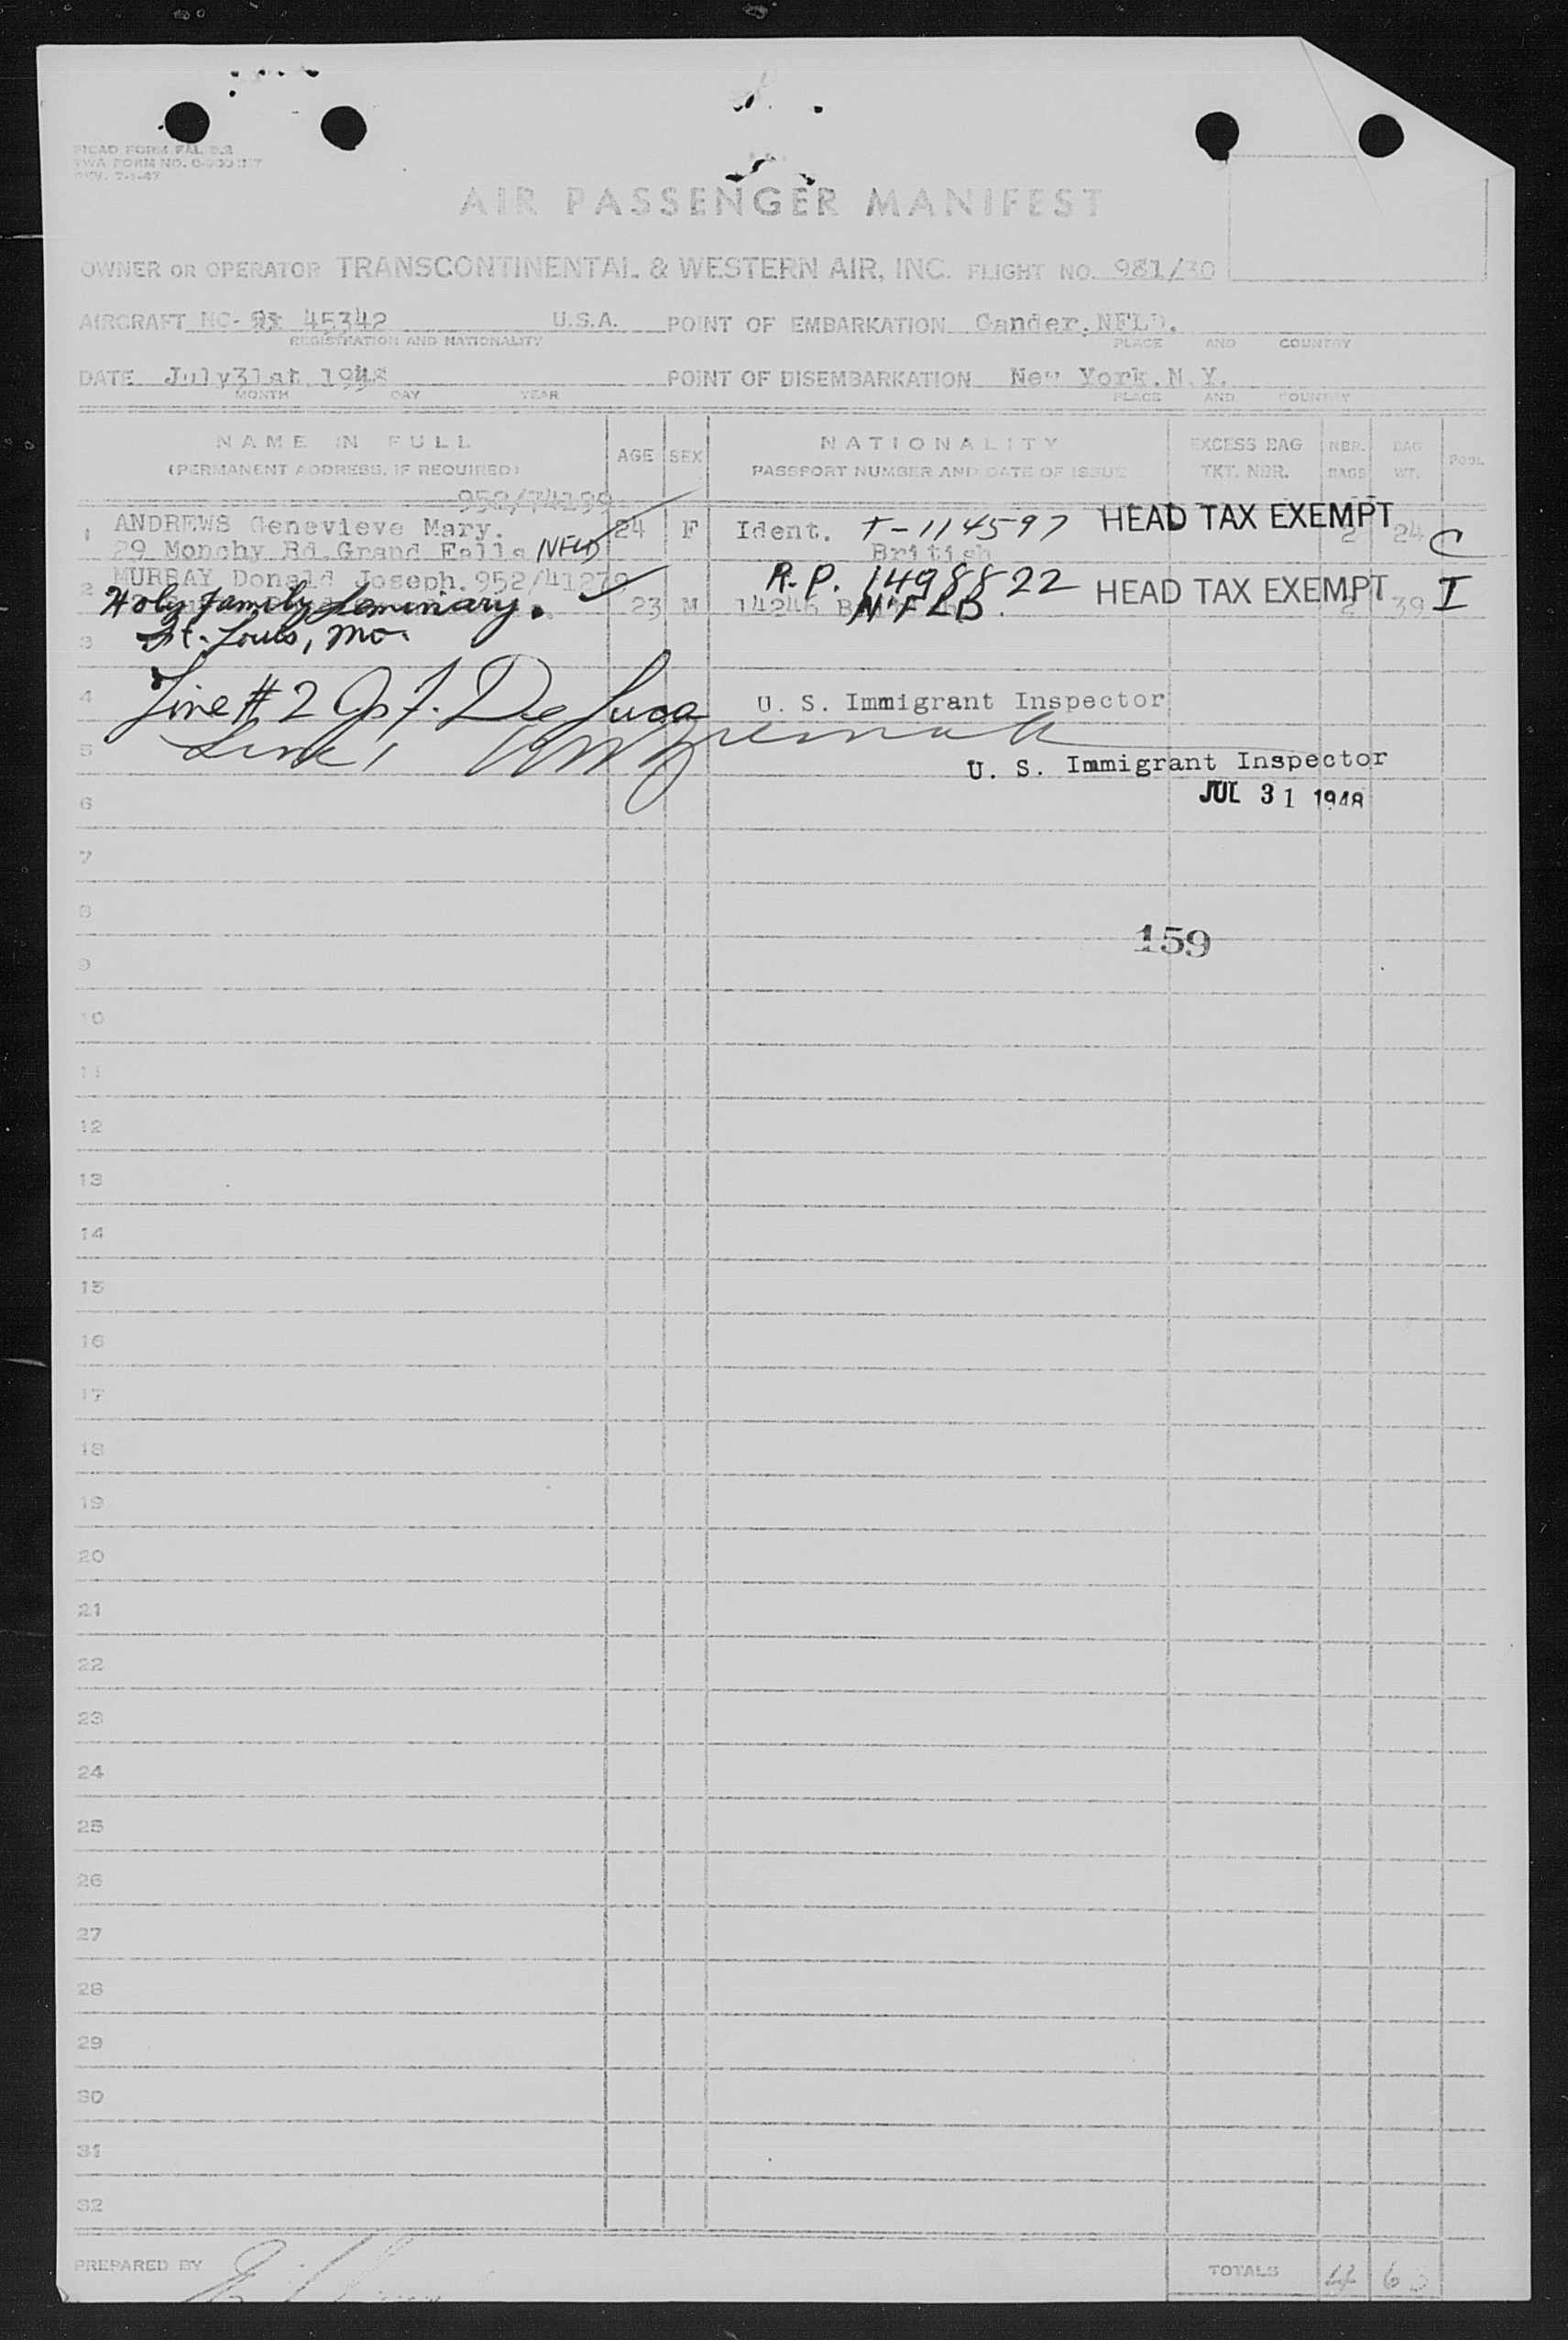 AIR PASSENGER MANIFEST
OWNER OR OPERATOR TRANSCONTINENTAL & WESTERN AIR, INC. FLIGHT NO. 981/30
AIRCRAFT NC- 45342 U.S.A. POINT OF EMBARKATION Gander, NFLD.
REGISTRATION AND NATIONALITY PLACE AND COUNTRY
DATE July 31st 1948 POINT OF DISEMBARKATION New York. N.Y.
MONTH DAY YEAR PLACE AND COUNTRY
NAME IN FULL AGE SEX NATIONALITY EXCESS BAG NBR. BAG POOL
(PERMANENT ADDRESS, IF REQUIRED) PASSPORT NUMBER AND DATE OF ISSUE TKT. NBR. BAGS WT.
952/74199
1 ANDREWS Genevieve Mary. 24 F Ident. T-114597 HEAD TAX EXEMPT 2 24 C
29 Monchy Rd. Grand Falls NFLD British
2 MURRAY Donald Joseph. 952/41279 R.P. 1498822 HEAD TAX EXEMPT I
Holy Family Seminary. 23 M 14246 NFLD. 2 39
3 St. Louis, Mo.
4 Line #2 Jos. F. De Luca U. S. Immigrant Inspector
5 Line 1
U. S. Immigrant Inspector
6 JUL 31 1948
7
8
159
9
10
11
12
13
14
15
16
17
18
19
20
21
22
23
24
25
26
27
28
29
30
31
32
PREPARED BY TOTALS 4 63